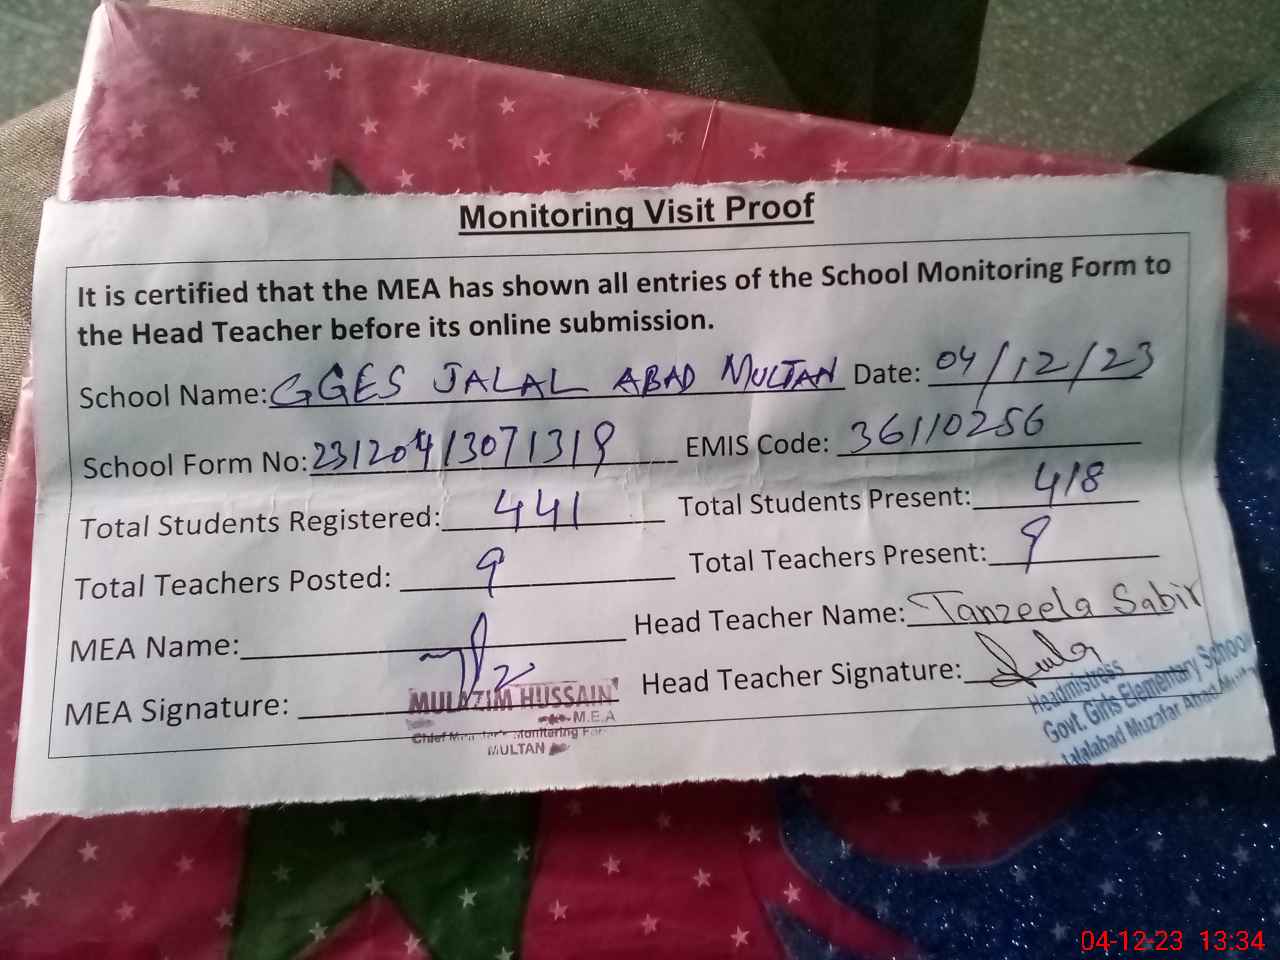 Monitoring Visit Proof
It is certified that the MEA has shown all entries of the School Monitoring Form to
the Head Teacher before its online submission.
School Name: GGES JALAL ABAD MULTAN Date: 04/12/23
School Form No: 23120413071319 EMIS Code: 36110256
Total Students Registered: 441 Total Students Present: 418
Total Teachers Posted: 9 Total Teachers Present: 9
MEA Name: Head Teacher Name: Tanzeela Sabir
MEA Signature: Head Teacher Signature:
MULAZIM HUSSAIN
M.E.A
Chief Monitoring
MULTAN
Headmistress
Govt. Girls Elementary School
Jalalabad Muzafar Abad
04-12-23 13:34